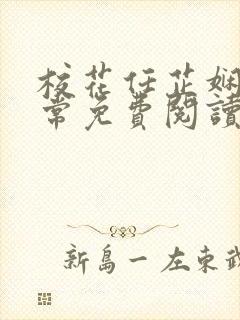 校花任芷嫻
常免費閱讀
新島一 左東武